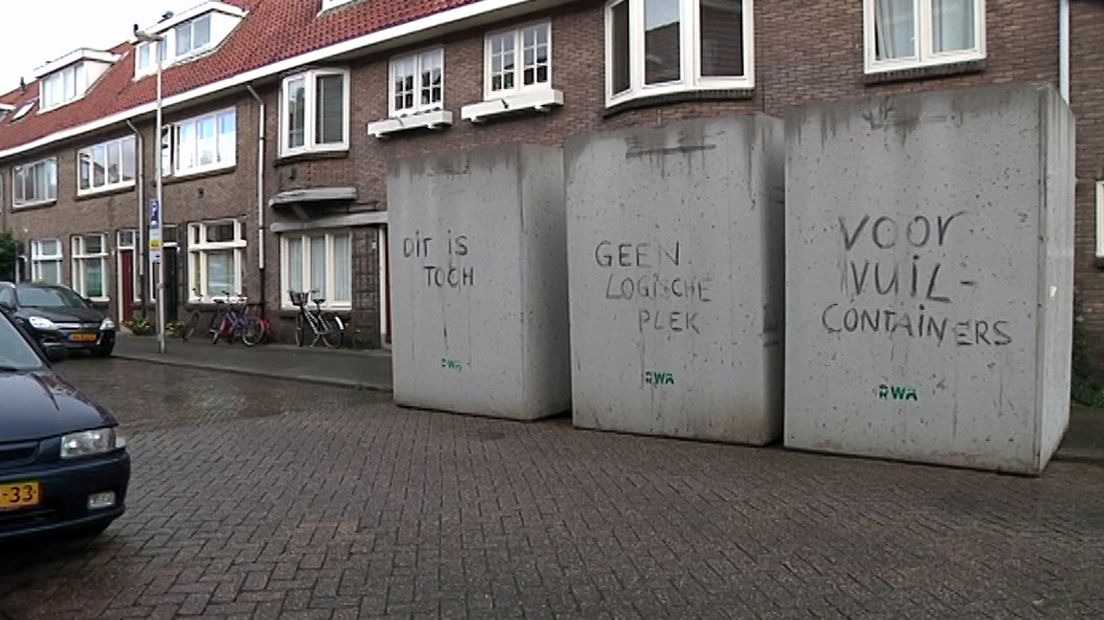 DIT IS
TOCH
RWA
GEEN
LOGISCHE
PLEK
RWA
VOOR
VUIL-
CONTAINERS
RWA
-33